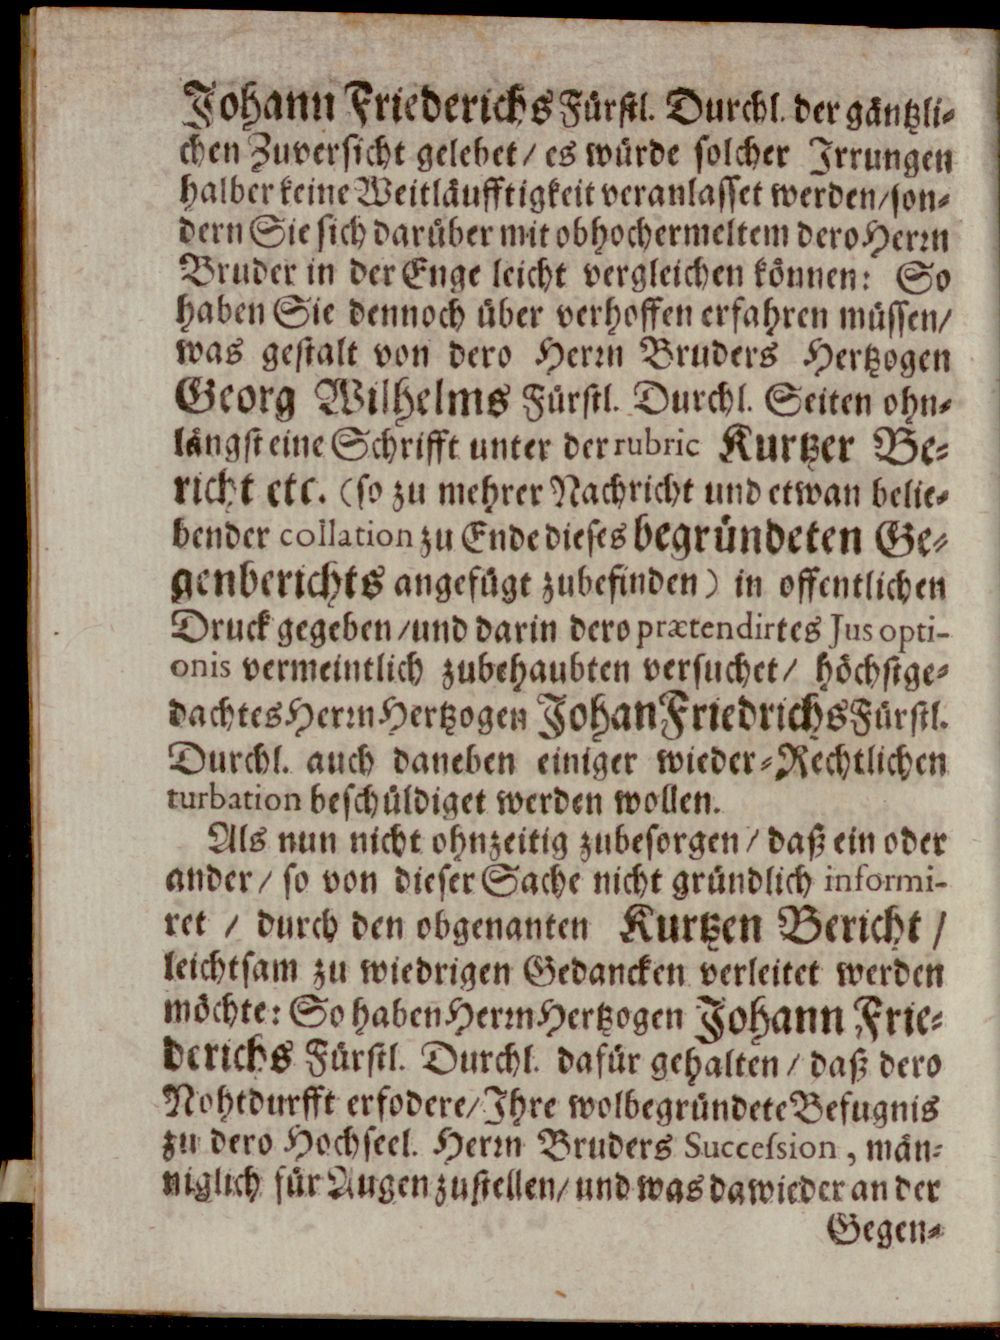 Johann Friederichs Fürstl. Durchl. der gäntzli-
chen Zuversicht gelebet / es würde solcher Irrungen
halber keine Weitläufftigkeit veranlasset werden / son-
dern Sie sich darüber mit obhochermeltem dero Herrn
Bruder in der Enge leicht vergleichen können: So
haben Sie dennoch über verhoffen erfahren müssen /
was gestalt von dero Herrn Bruders Hertzogen
Georg Wilhelms Fürstl. Durchl. Seiten ohn-
längst eine Schrifft unter der rubric Kurtzer Be-
richt etc. (so zu mehrer Nachricht und etwan belie-
bender collation zu Ende dieses begründeten Ge-
genberichts angefügt zubefinden) in offentlichen
Druck gegeben / und darin dero prætendirtes Jus opti-
onis vermeintlich zubehaubten versuchet / höchstge-
dachtes Herrn Hertzogen Johan Friedrichs Fürstl.
Durchl. auch daneben einiger wieder-Rechtlichen
turbation beschüldiget werden wollen.
Als nun nicht ohnzeitig zubesorgen / daß ein oder
ander / so von dieser Sache nicht gründlich informi-
ret / durch den obgenanten Kurtzen Bericht /
leichtsam zu wiedrigen Gedancken verleitet werden
möchte: So haben Herrn Hertzogen Johann Frie-
derichs Fürstl. Durchl. dafür gehalten / daß dero
Nohtdurfft erfodere / Ihre wolbegründete Befugnis
zu dero Hochseel. Herrn Bruders Succeſsion, män-
niglich für Augen zustellen / und was dawieder an der
Gegen-